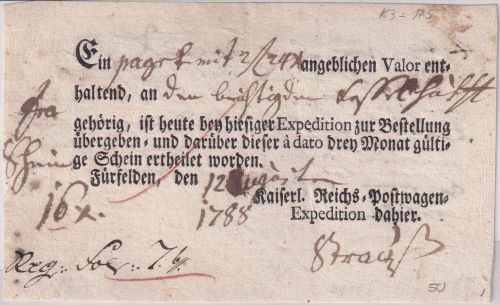 K3 = 175
Ein paget mit 2 f 24 x angeblichen Valor ent-
haltend, an den
gehörig, ist heute bey hiesiger Expedition zur Bestellung
übergeben- und darüber dieser à dato drey Monat gülti-
Schein
ge Schein ertheilet worden.
Fürfelden, den 12 Augusten
16 x. 1788
Kaiserl. Reichs-Postwagen-
Expedition dahier.
Strauß
Reg: Fol: 76